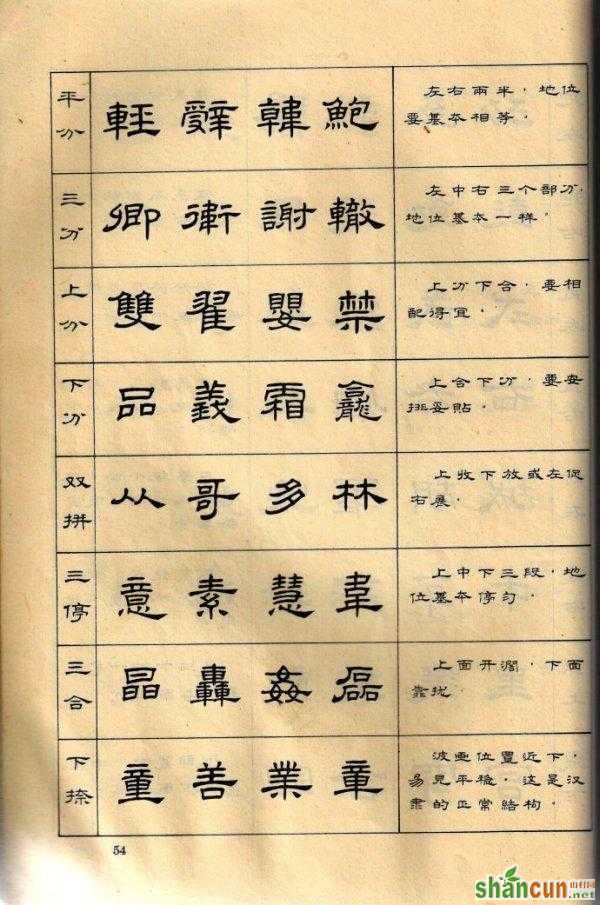 平分
韓 鮑
左右兩半，地位
要基本相等。
三分
卿 謝 轍
左中右三个部分，
地位基本一样。
上分
雙 翟 嬰 禁
上分下合，要相
配得宜。
下分
品 義 霜 龕
上合下分，要安
排妥貼。
双拼
从 哥 多 林
上收下放或左促
右展。
三停
意 素 慧 韋
上中下三段，地
位基本停匀。
三合
晶 轟 姦 磊
上面开濶，下面
靠拢。
下捺
童 善 業 章
波画位置近下，
易見平稳，这是汉
隶的正常結构。
54
shancun
山村网
.net